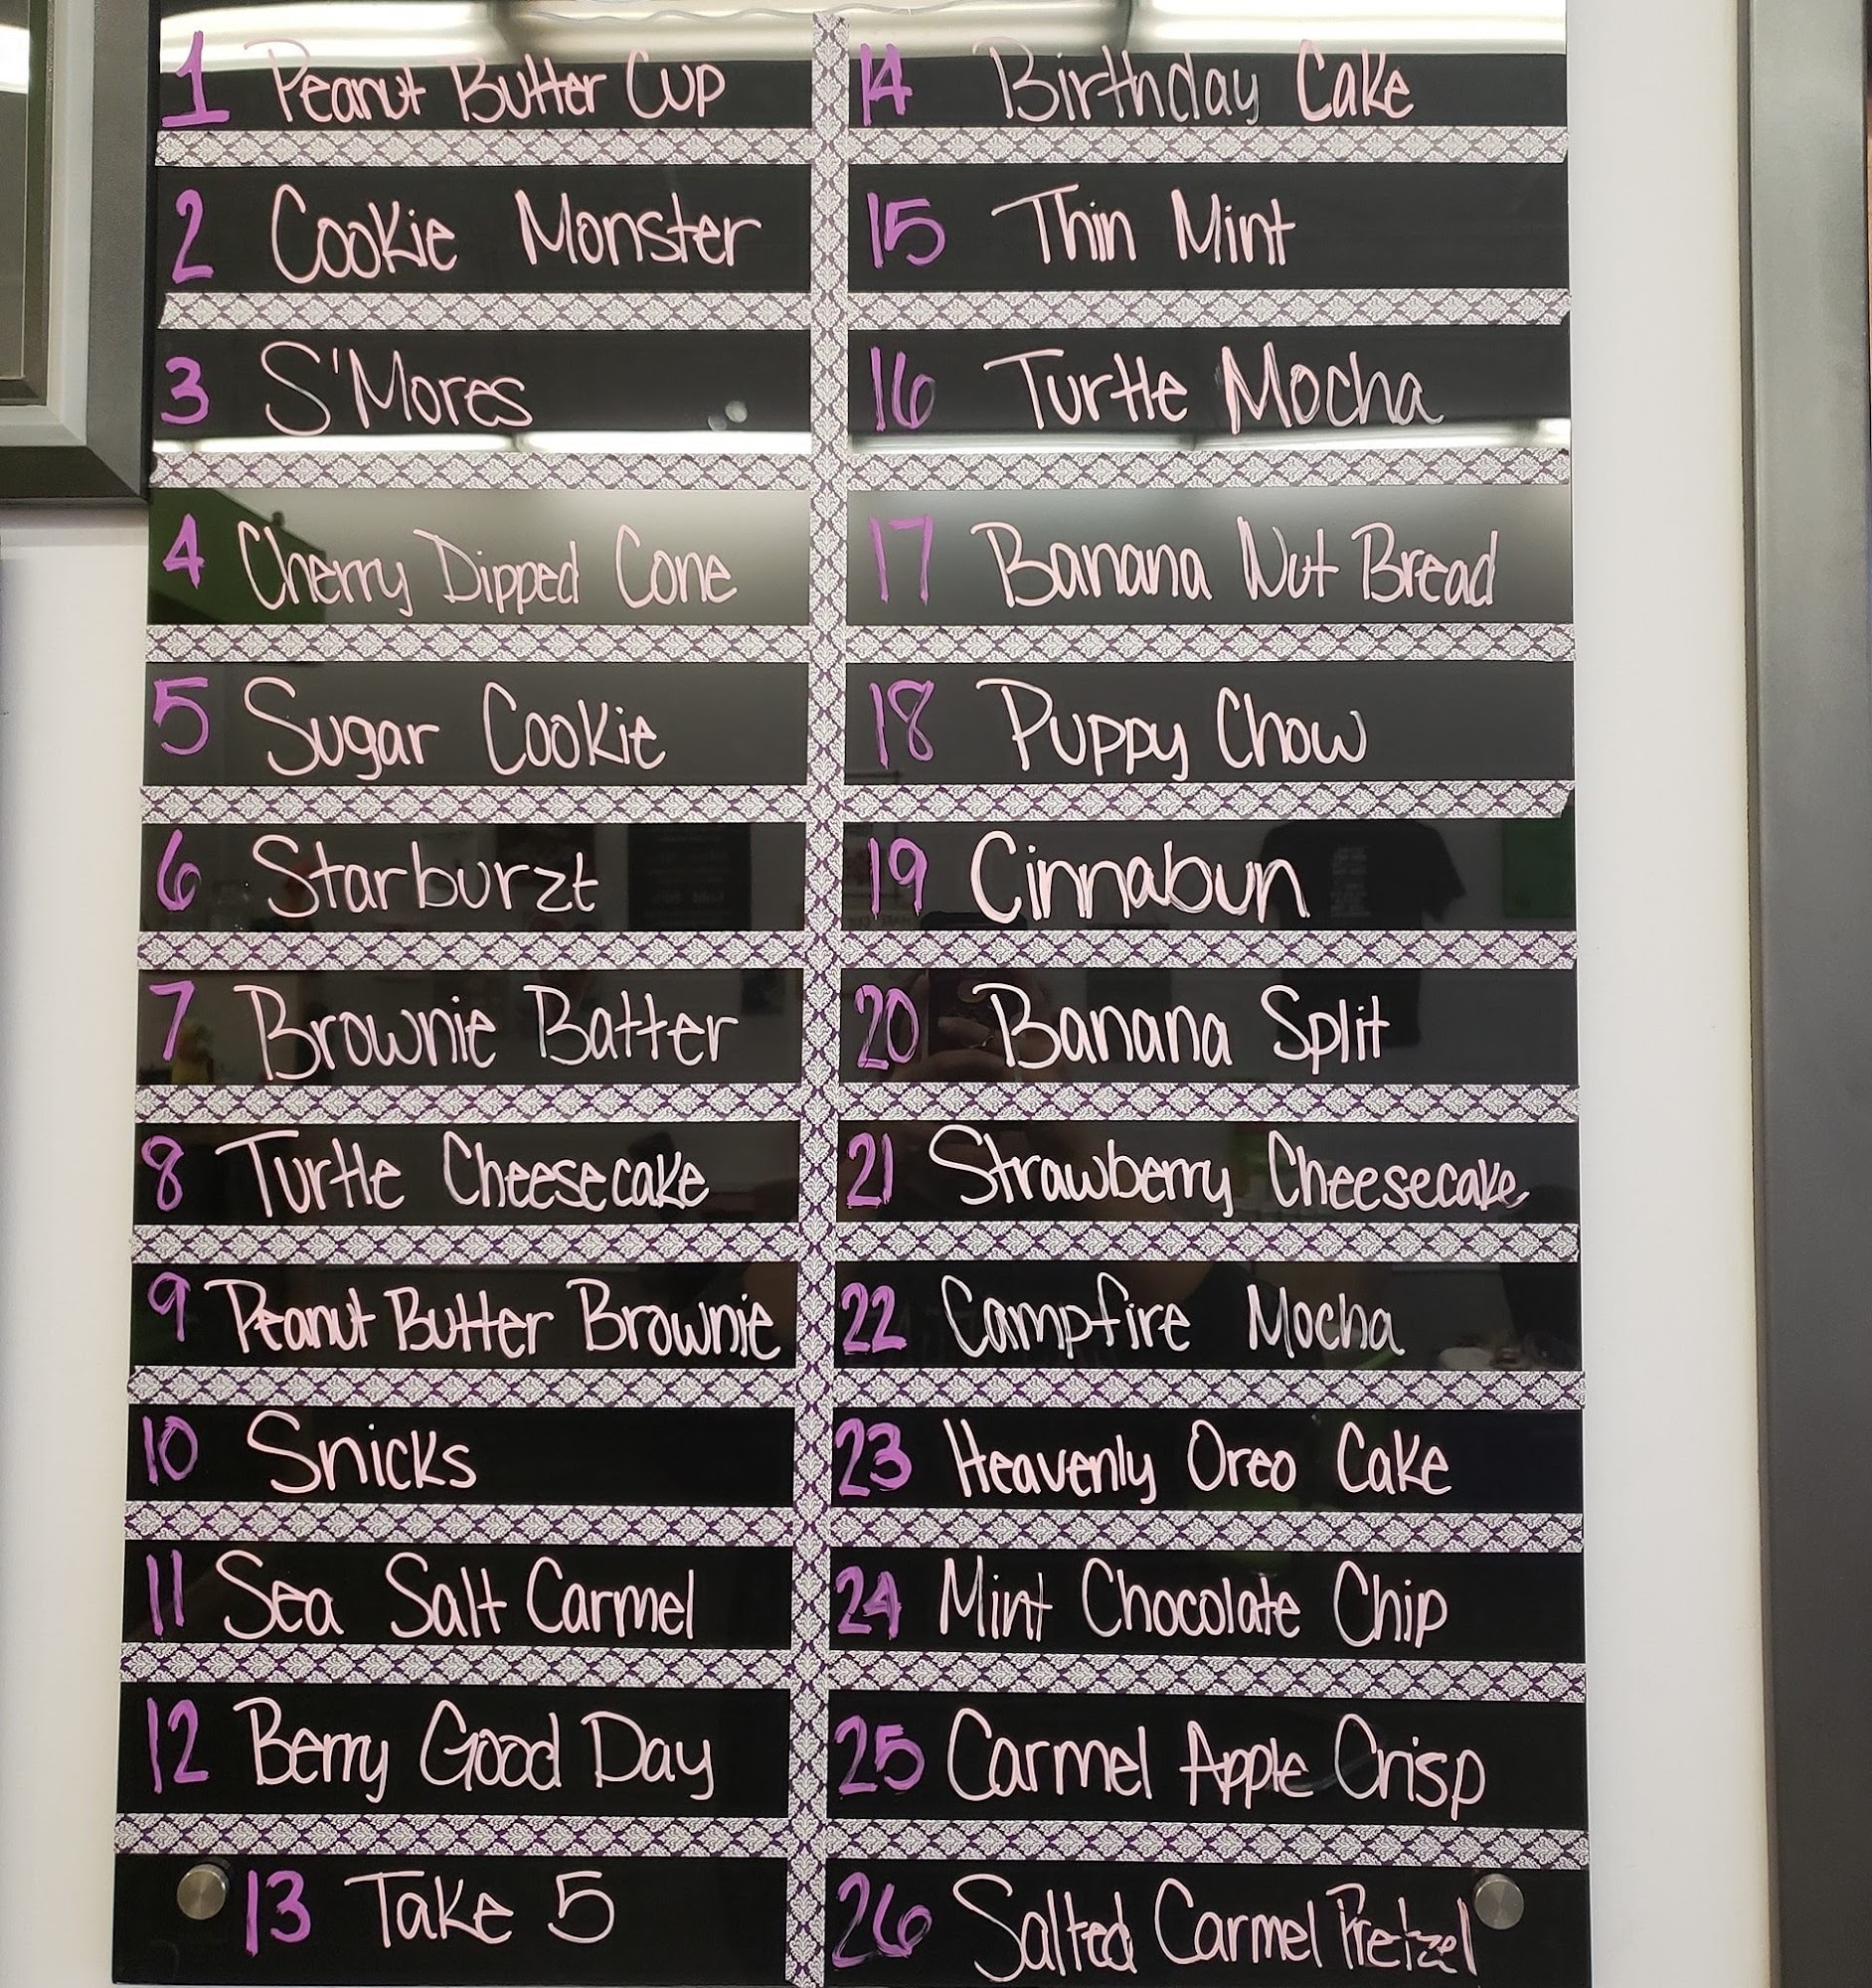 1 Peanut Butter Cup
2 Cookie Monster
3 S'Mores
4 Cherry Dipped Cone
5 Sugar Cookie
6 Starburzt
7 Brownie Batter
8 Turtle Cheesecake
9 Peanut Butter Brownie
10 Snicks
11 Sea Salt Carmel
12 Berry Good Day
13 Take 5
14 Birthday Cake
15 Thin Mint
16 Turtle Mocha
17 Banana Nut Bread
18 Puppy Chow
19 Cinnabun
20 Banana Split
21 Strawberry Cheesecake
22 Campfire Mocha
23 Heavenly Oreo Cake
24 Mint Chocolate Chip
25 Carmel Apple Crisp
26 Salted Carmel Pretzel